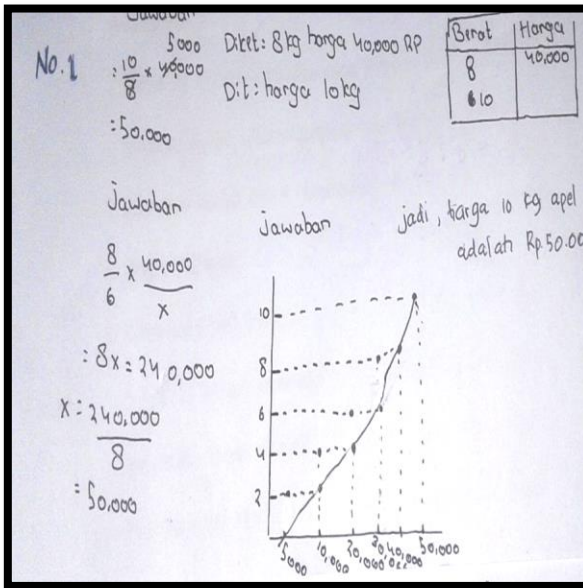 Jawaban
No.1
5000
: 10/8 × 40,000
: 50,000
Diket: 8 kg harga 40,000 RP
Dit: harga 10kg
Berat Harga
8 40,000
10
Jawaban
8/6 × 40,000/x
: 8x = 240,000
x = 240,000/8
= 50,000
Jawaban
jadi, harga 10 kg apel
adalah Rp.50.00
10
8
6
4
2
5,000 10,000 20,000 40,000 50,000